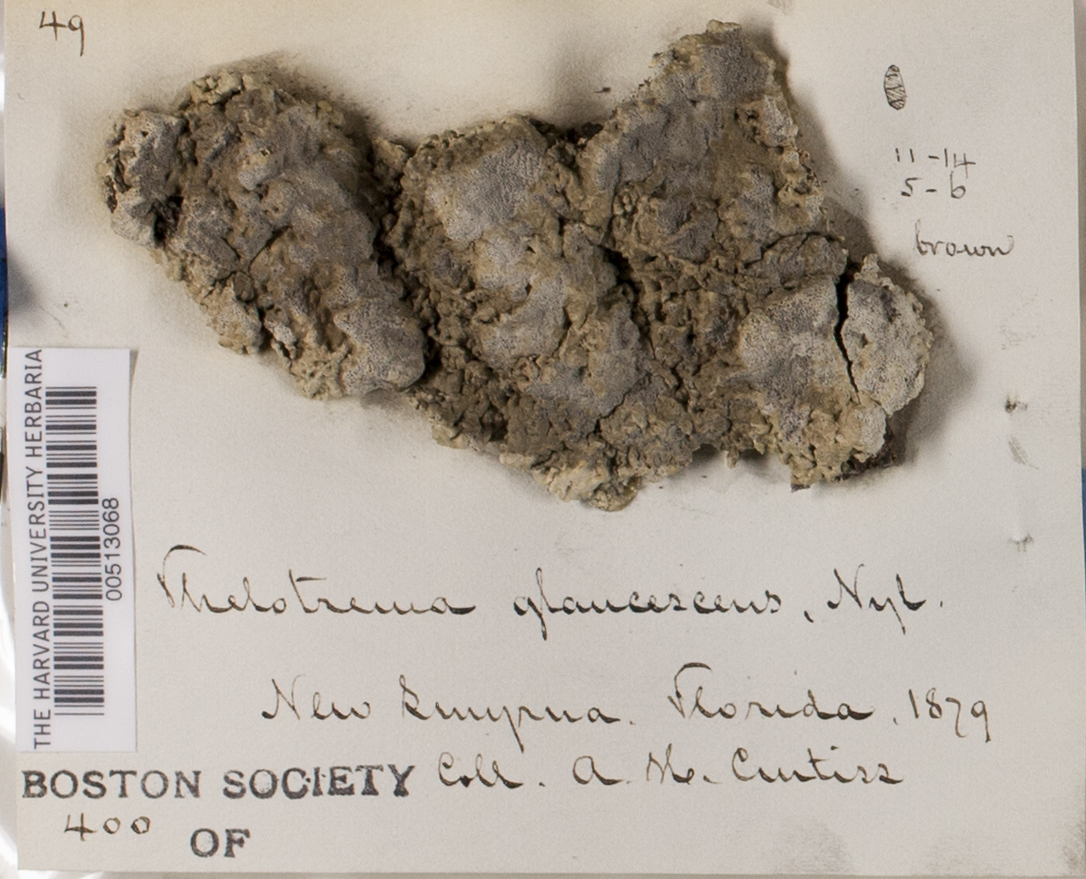 49
11-14
5-6
brown
THE HARVARD UNIVERSITY HERBARIA
00513068
Thelotrema glaucescens, Nyl.
New Smyrna. Florida. 1879
Coll. A. H. Curtiss
BOSTON SOCIETY
400
OF